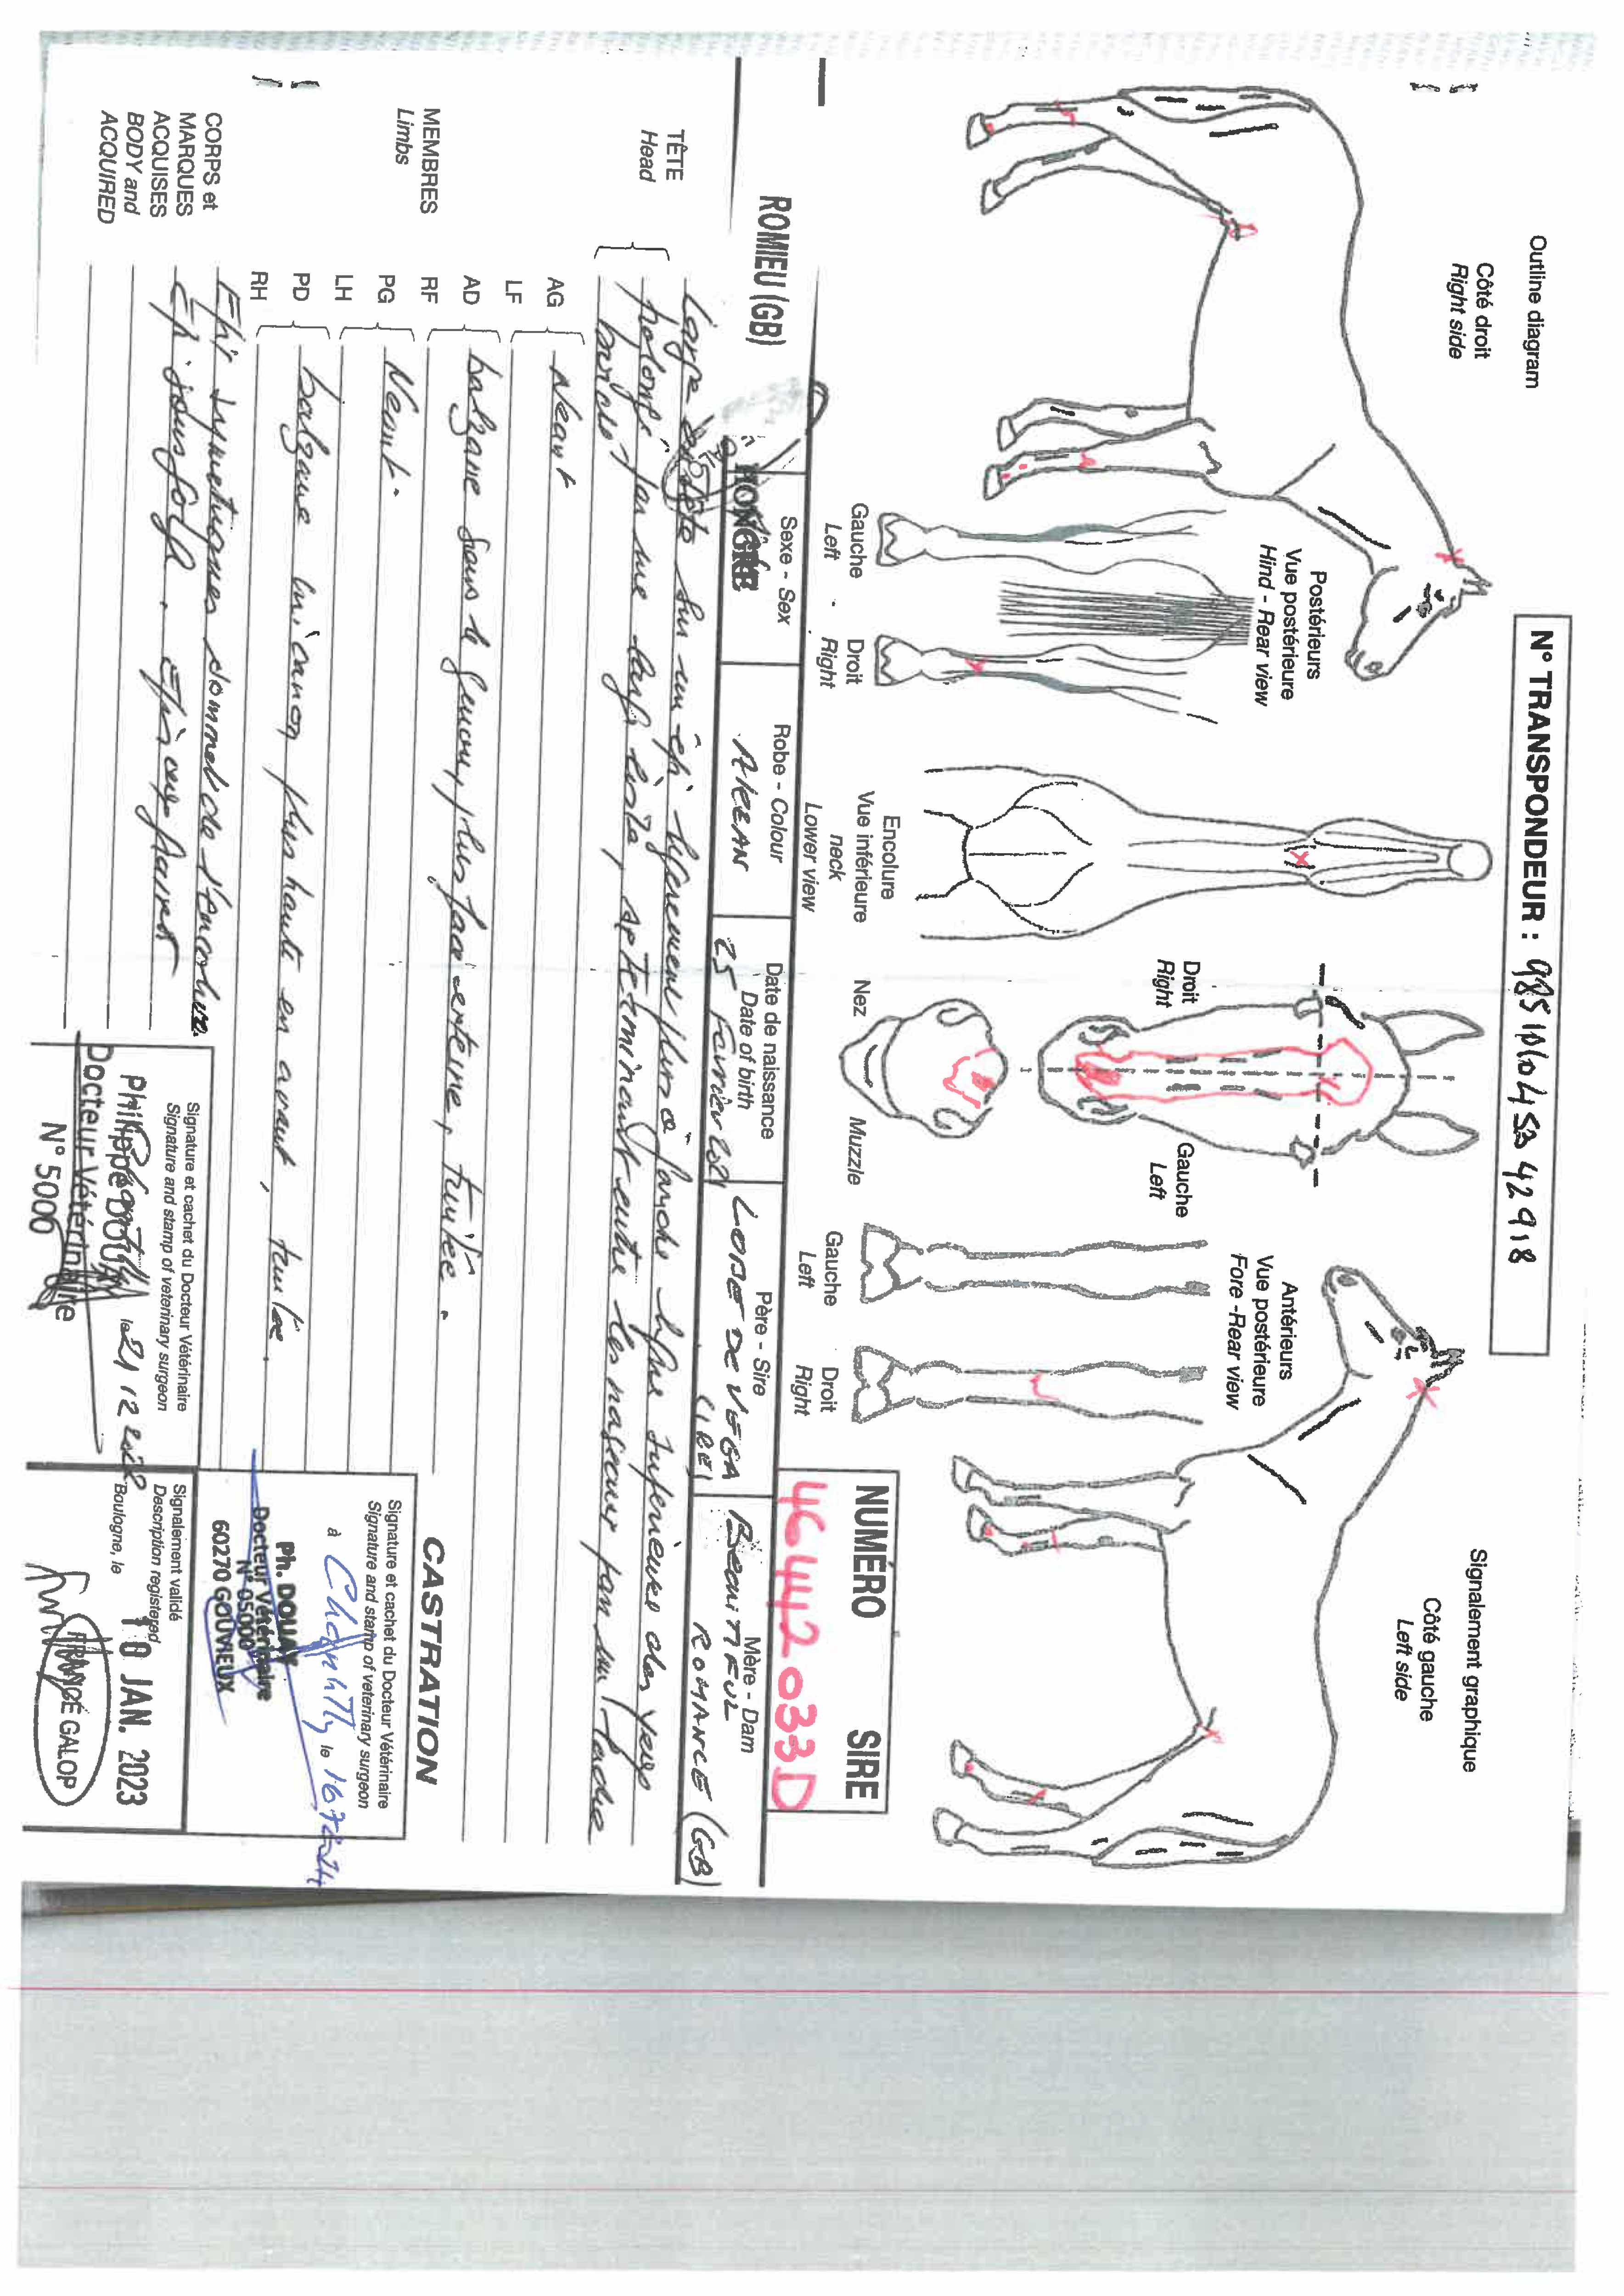 N° TRANSPONDEUR : 985101045342918
Outline diagram
Signalement graphique
Côté droit
Right side
Côté gauche
Left side
Postérieurs
Vue postérieure
Hind - Rear view
Gauche
Left
Droit
Right
Encolure
Vue inférieure
neck
Lower view
Droit
Right
Gauche
Left
Nez
Muzzle
Antérieurs
Vue postérieure
Fore - Rear view
Gauche
Left
Droit
Right
NUMÉRO SIRE
46442033D
ROMIEU (GB)
Sexe - Sex
HONGRE
Robe - Colour
ALEZAN
Date de naissance
Date of birth
25 février 2021
Père - Sire
LOPE DE VEGA
(IRE)
Mère - Dam
BEAUTIFUL
ROMANCE (GB)
TÊTE
Head
Large en tête sur un épi légèrement plus à gauche ligne supérieure des yeux
prolongé par une large liste, se terminant entre les naseaux par un ladre
bordé
MEMBRES
Limbs
AG
LF
Néant
AD
RF
balzane sous le genou, plus face externe, truitée.
PG
LH
Néant.
PD
RH
balzane mi canon plus haute en avant, truitée.
CORPS et
MARQUES
ACQUISES
BODY and
ACQUIRED
Epi symétriques sommet de l'encolure.
Epi sous gorge. Epis
CASTRATION
Signature et cachet du Docteur Vétérinaire
Signature and stamp of veterinary surgeon
à Chantilly le 16
Ph. DOUAY
Docteur Vétérinaire
N° 05000
60270 GOUVIEUX
Signature et cachet du Docteur Vétérinaire
Signature and stamp of veterinary surgeon
Philippe DOUAY
le 21 12 2022
Docteur Vétérinaire
N° 5000
Signalement validé
Description registered
Boulogne, le
10 JAN. 2023
FRANCE GALOP